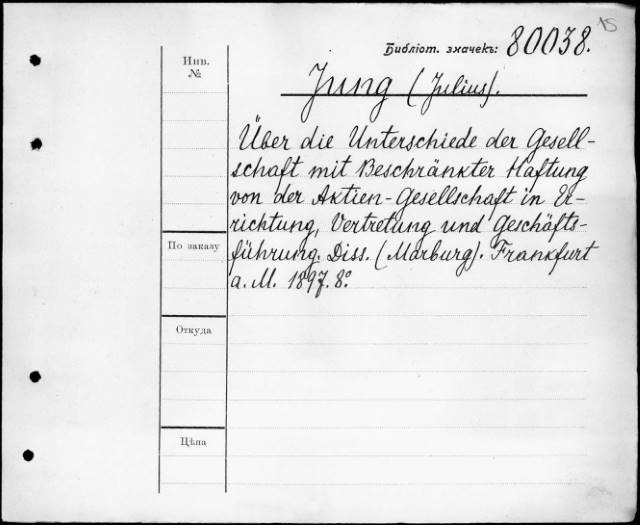 15
Библіот. значекъ: 80038.
Инв.
№
Jung (Julius).
Über die Unterschiede der Gesell-
schaft mit Beschränkter Haftung
von der Aktien-Gesellschaft in Er-
richtung, Vertretung und Geschäfts-
führung. Diss. (Marburg). Frankfurt
a. M. 1897. 8°
По заказу
Откуда
Цѣна